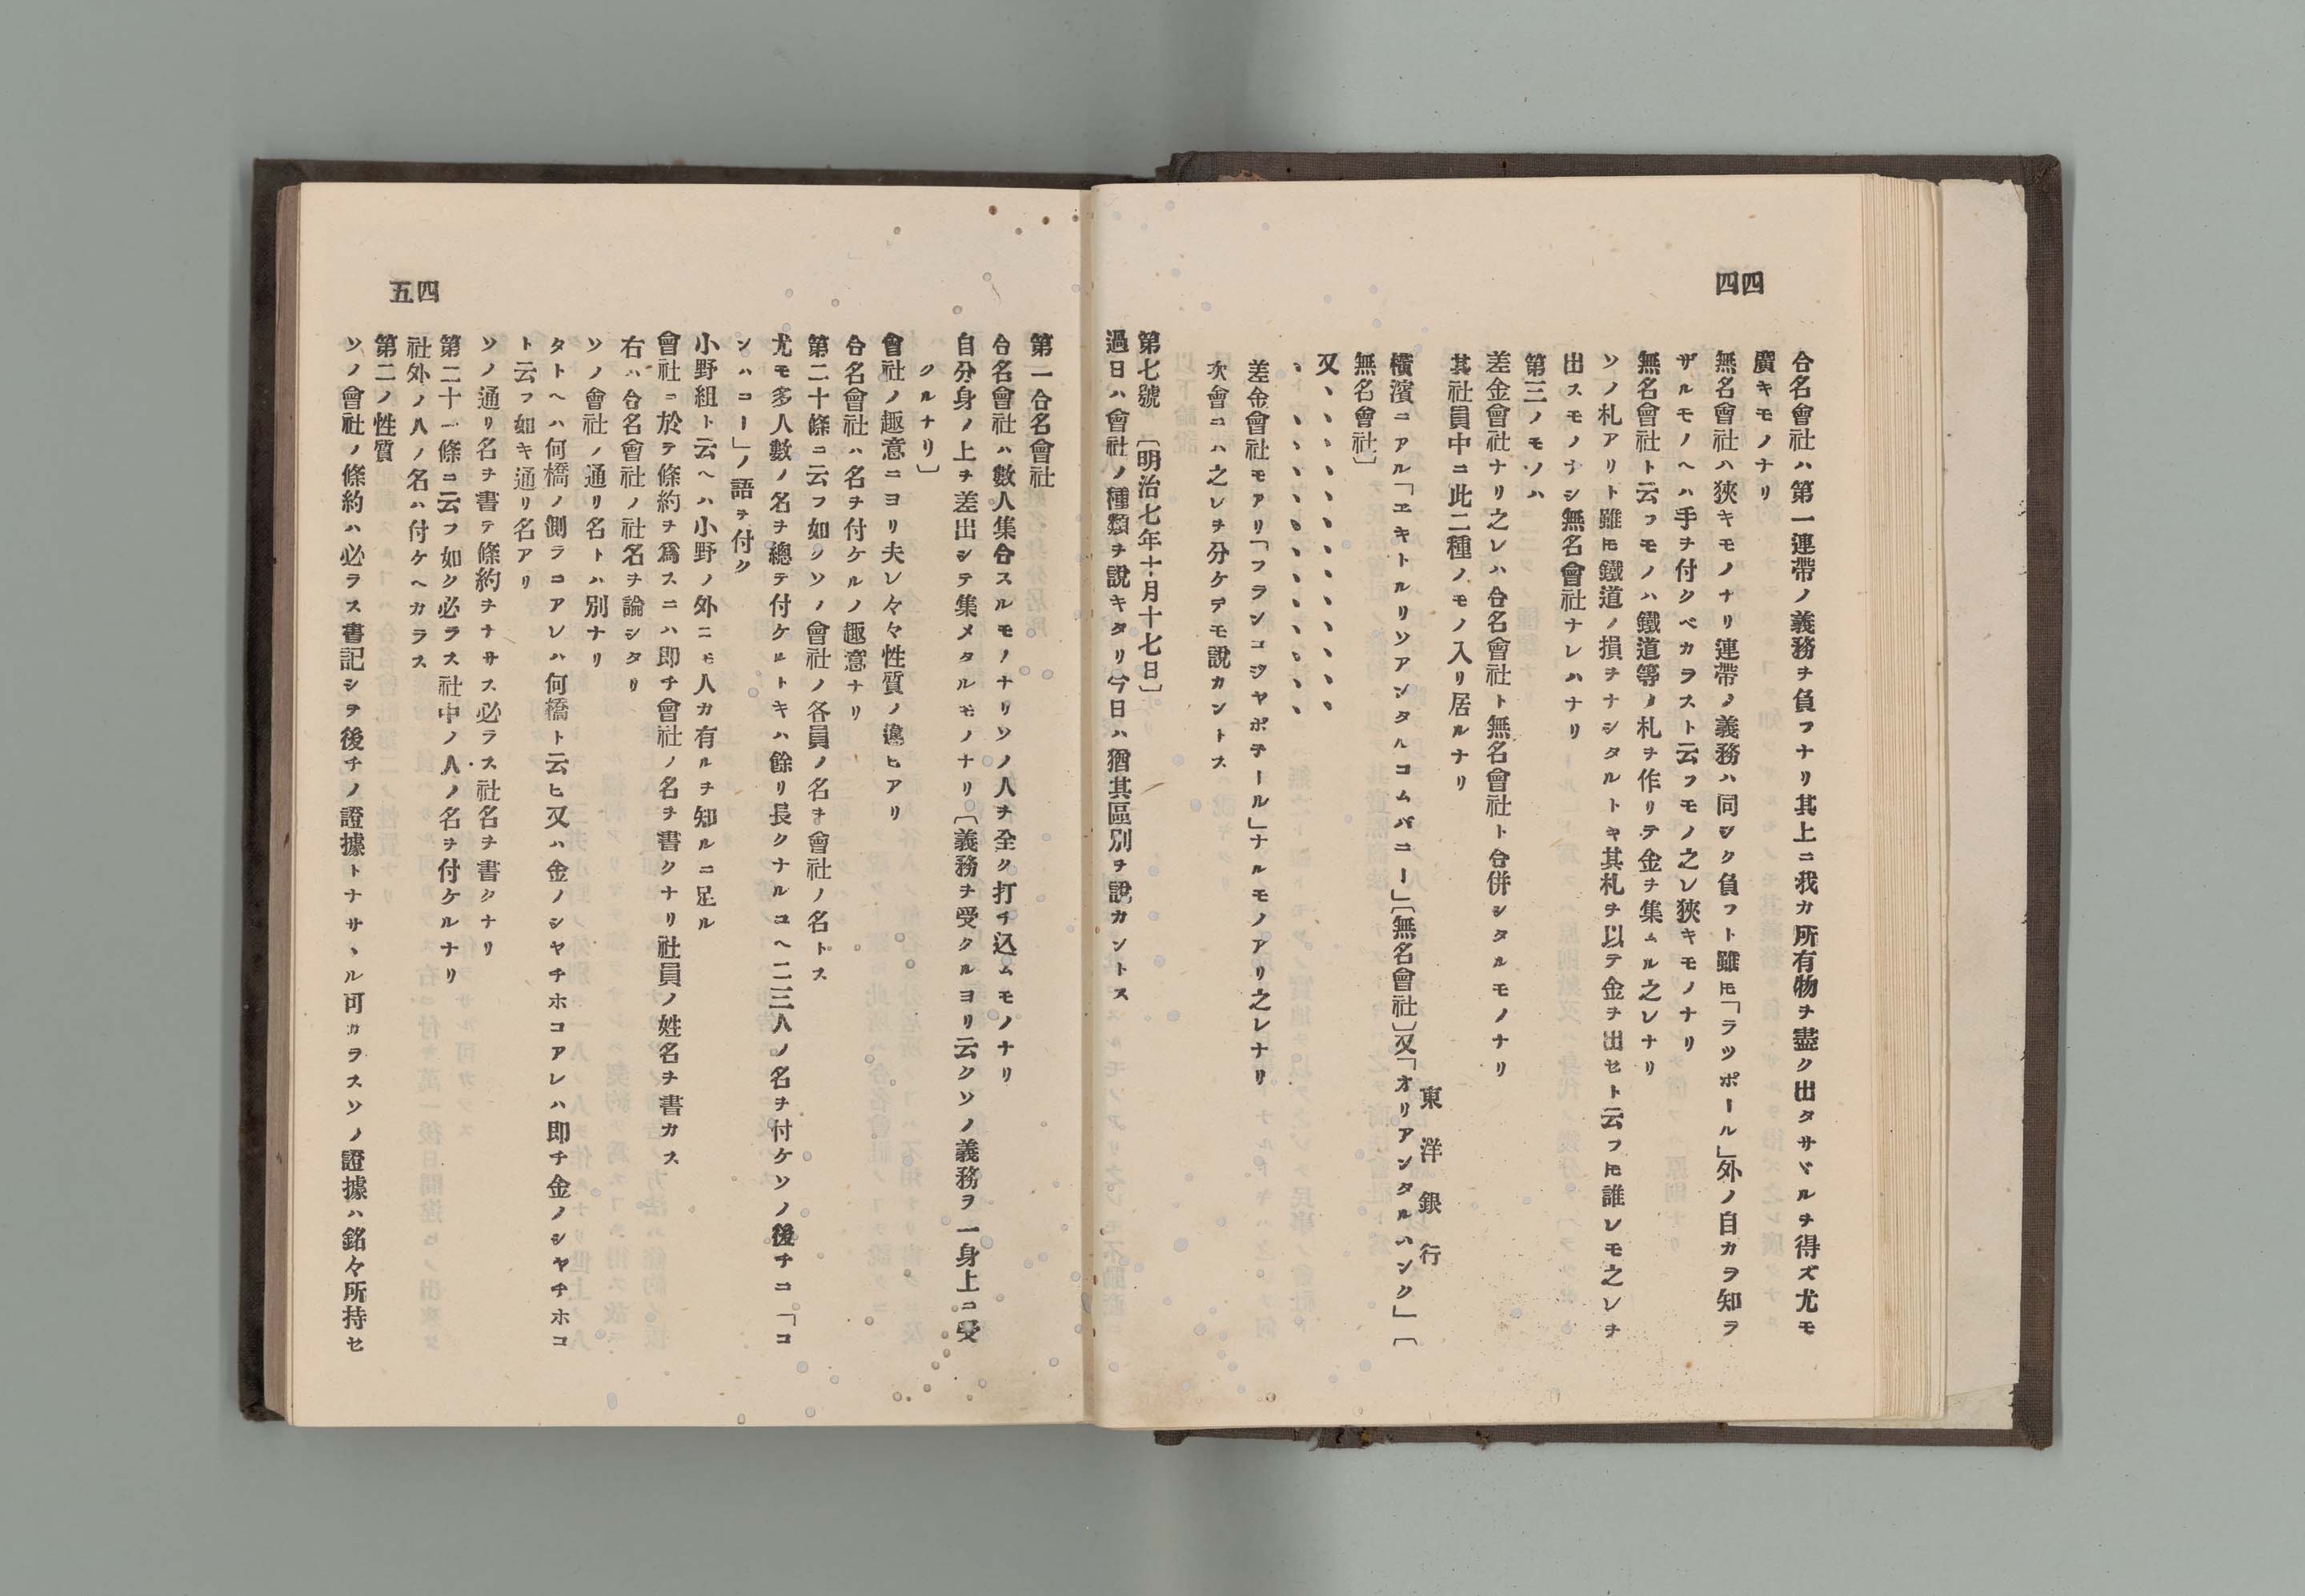 四四
合名會社ハ第一連帶ノ義務ヲ負フナリ其上ニ我カ所有物ヲ盡ク出タサヾルヲ得ズ尤モ
廣キモノナリ
無名會社ハ狹キモノナリ連帶ノ義務ハ同シク負フト雖𪜈「ラツポール」外ノ自カラ知ラ
ザルモノヘハ手ヲ付クベカラスト云フモノ之レ狹キモノナリ
無名會社ト云フモノハ鐵道等ノ札ヲ作リテ金ヲ集ムル之レナリ
ソノ札アリト雖𪜈鐵道ノ損ヲナシタルトキ其札ヲ以テ金ヲ出セト云フ𪜈誰レモ之レヲ
出スモノナシ無名會社ナレハナリ
第三ノモノハ
差金會社ナリ之レハ合名會社ト無名會社ト合併シタルモノナリ
其社員中ニ此二種ノモノ入リ居ルナリ
東洋銀行
橫濱ニアル「ヱキトルリソアンタルコムパニー」〔無名會社〕又「オリアンタルハンク」〔
無名會社〕
又、、、、、、、、、、、、、
、、、、、、、、、、、、、
差金會社モアリ「フランコジヤポテール」ナルモノアリ之レナリ
次會ニハ之レヲ分ケテモ說カントス
第七號　〔明治七年十月十七日〕
過日ハ會社ノ種類ヲ說キタリ今日ハ猶其區別ヲ說カントス
四五
第一合名會社
合名會社ハ數人集合スルモノナリソノ人ヲ全ク打チ込ムモノナリ
自分身ノ上ヲ差出シテ集メタルモノナリ〔義務ヲ受クルヨリ云クソノ義務ヲ一身上ニ受
クルナリ〕
會社ノ趣意ニヨリ夫レ々々性質ノ違ヒアリ
合名會社ハ名ヲ付ケルノ趣意ナリ
第二十條ニ云フ如クソノ會社ノ各員ノ名ヲ會社ノ名トス
尤モ多人數ノ名ヲ總テ付ケルトキハ餘リ長クナルユヘ二三人ノ名ヲ付ケソノ後チニ「コ
ンハニー」ノ語ヲ付ク
小野組ト云ヘハ小野ノ外ニモ人カ有ルヲ知ルニ足ル
會社ニ於テ條約ヲ爲スニハ即チ會社ノ名ヲ書クナリ社員ノ姓名ヲ書カス
右ハ合名會社ノ社名ヲ論シタリ
ソノ會社ノ通リ名トハ別ナリ
タトヘハ何橋ノ側ラニアレハ何橋ト云ヒ又ハ金ノシヤチホコアレハ即チ金ノシヤチホコ
ト云フ如キ通リ名アリ
ソノ通リ名ヲ書テ條約ヲナサス必ラス社名ヲ書クナリ
第二十一條ニ云フ如ク必ラス社中ノ人ノ名ヲ付ケルナリ
社外ノ人ノ名ハ付ケヘカラス
第二ノ性質
ソノ會社ノ條約ハ必ラス書記シヲ後チノ證據トナサヽル可カラスソノ證據ハ銘々所持セ